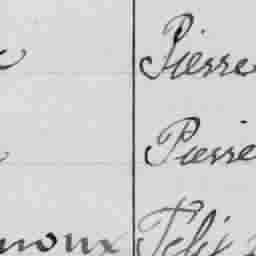 Pierre
Pierre
noux Felix